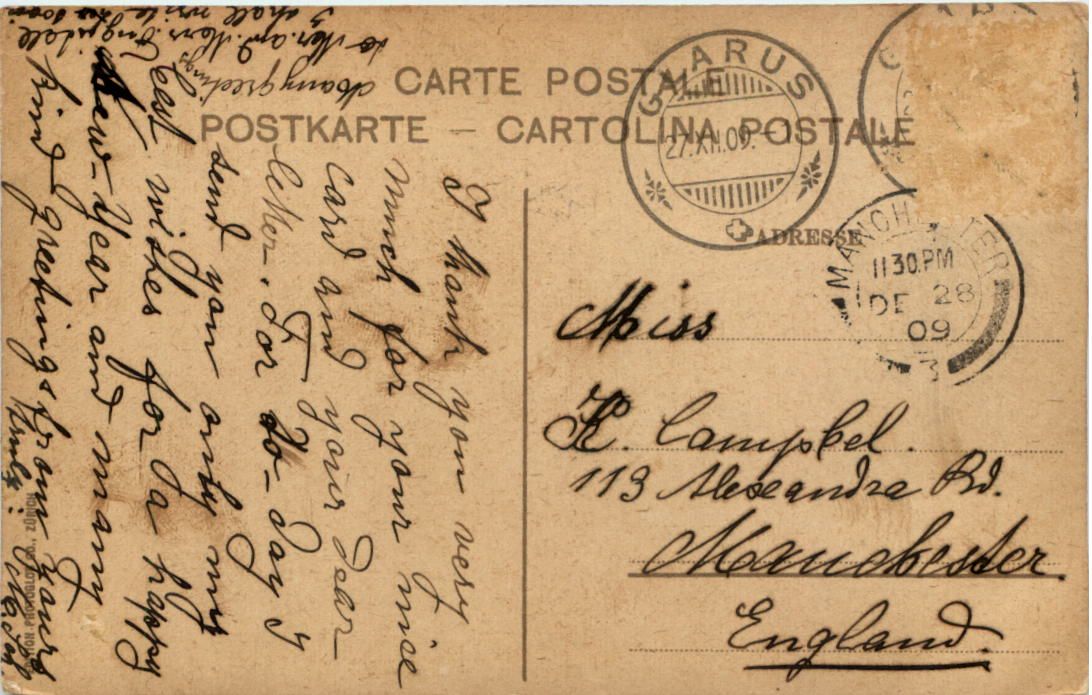 CARTE POSTALE
POSTKARTE – CARTOLINA POSTALE
ADRESSE
GLARUS
27.XII.09.–1
MANCHESTER
11 30.PM
DE 28
09
3
Miss
K. Campbel.
113 Alexandra Rd.
Manchester.
England.
I thank you very
much for your nice
card and your dear
letter. For to-day I
send you only my
best wishes for a happy
New-Year and many
kind greetings from yours
truly:
Many greetings
to Mr. and Mrs.
I shall write
ZÜRICH